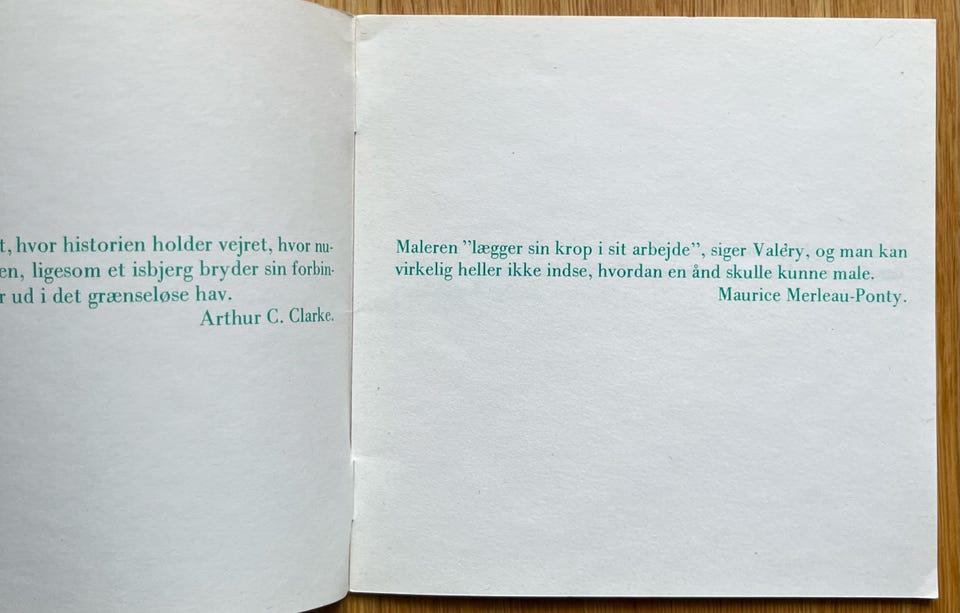 t, hvor historien holder vejret, hvor nu-
en, ligesom et isbjerg bryder sin forbin-
r ud i det grænseløse hav.
Arthur C. Clarke.
Maleren ”lægger sin krop i sit arbejde”, siger Valéry, og man kan
virkelig heller ikke indse, hvordan en ånd skulle kunne male.
Maurice Merleau-Ponty.